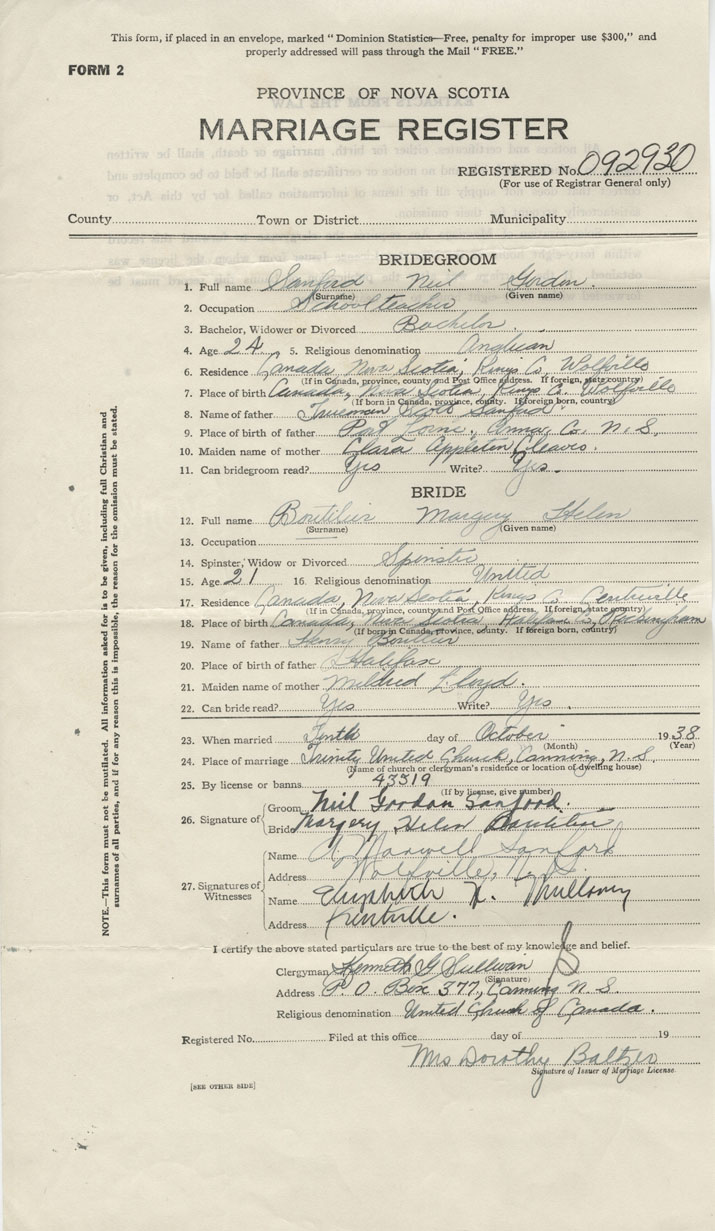 This form, if placed in an envelope, marked "Dominion Statistics—Free, penalty for improper use $300," and
properly addressed will pass through the Mail "FREE."
FORM 2
PROVINCE OF NOVA SCOTIA
MARRIAGE REGISTER
REGISTERED No. 092930
(For use of Registrar General only)
County Town or District Municipality
BRIDEGROOM
1. Full name Sanford Neil Gordon.
(Surname) (Given name)
2. Occupation School teacher
3. Bachelor, Widower or Divorced Bachelor.
4. Age 24. 5. Religious denomination Anglican
6. Residence Canada, Nova Scotia, Kings Co, Wolfville
(If in Canada, province, county and Post Office address. If foreign, state country)
7. Place of birth Canada, Nova Scotia, Kings Co. Wolfville
(If born in Canada, province, county. If foreign born, country)
8. Name of father Trueman Scott Sanford.
9. Place of birth of father Port Lorne, Anna. Co. N. S.
10. Maiden name of mother Clara Appleton Cleaves.
11. Can bridegroom read? Yes Write? Yes.
BRIDE
12. Full name Boutilier Margery Helen
(Surname) (Given name)
13. Occupation
14. Spinster, Widow or Divorced Spinster
15. Age 21 16. Religious denomination United
17. Residence Canada, Nova Scotia, Kings Co Centreville
(If in Canada, province, county and Post Office address. If foreign, state country)
18. Place of birth Canada, Nova Scotia, Halifax Co, Rockingham
(If born in Canada, province, county. If foreign born, country)
19. Name of father Henry Boutilier
20. Place of birth of father Halifax
21. Maiden name of mother Mildred Lloyd.
22. Can bride read? Yes Write? Yes.
23. When married Tenth day of October 1938
(Month) (Year)
24. Place of marriage Trinity United Church, Canning, N.S.
(Name of church or clergyman's residence or location of dwelling house)
25. By license or banns 43319
(If by license, give number)
26. Signature of Groom Neil Gordon Sanford.
Bride Margery Helen Boutilier
27. Signatures of Witnesses
Name A. Maxwell Sanford
Address Wolfville, N.S.
Name Elizabeth K. Mullowy
Address Kentville.
I certify the above stated particulars are true to the best of my knowledge and belief.
Clergyman Kenneth G Sullivan
(Signature)
Address P. O. Box 377, Canning N. S.
Religious denomination United Church of Canada.
Registered No. Filed at this office day of 19
Mrs Dorothy Baltzer
Signature of Issuer of Marriage License
[SEE OTHER SIDE]
NOTE.—This form must not be mutilated. All information asked for is to be given, including full Christian and
surnames of all parties, and if for any reason this is impossible, the reason for the omission must be stated.